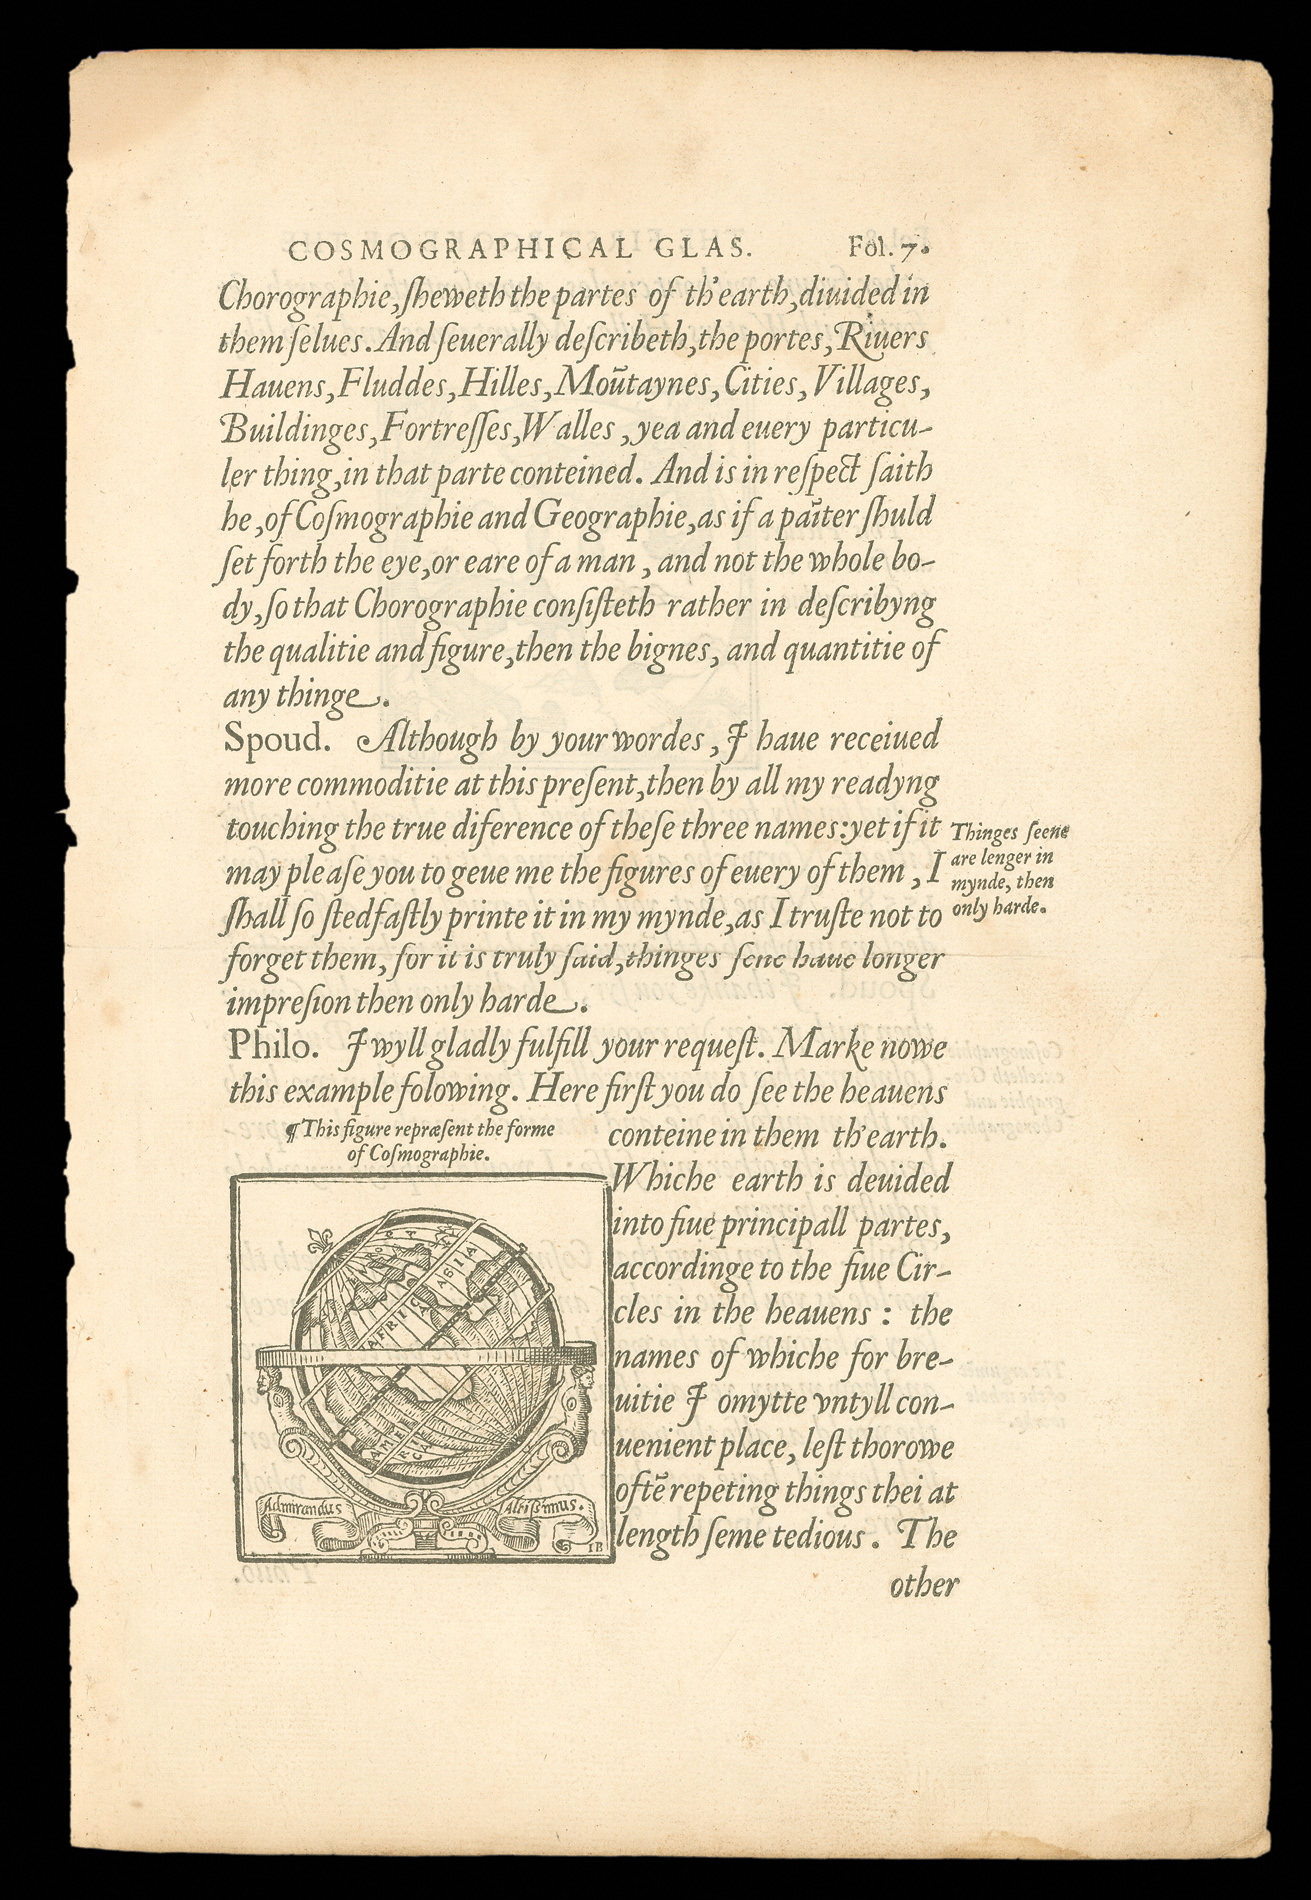 COSMOGRAPHICAL GLAS. Fol. 7.
Chorographie, ſheweth the partes of th'earth, diuided in
them ſelues. And ſeuerally deſcribeth, the portes, Riuers
Hauens, Fluddes, Hilles, Moūtaynes, Cities, Villages,
Buildinges, Fortreſſes, Walles, yea and euery particu-
ler thing, in that parte conteined. And is in reſpect ſaith
he, of Coſmographie and Geographie, as if a paīter ſhuld
ſet forth the eye, or eare of a man, and not the whole bo-
dy, ſo that Chorographie conſiſteth rather in deſcribyng
the qualitie and figure, then the bignes, and quantitie of
any thinge.
Spoud. Although by your wordes, I haue receiued
more commoditie at this preſent, then by all my readyng
touching the true diference of theſe three names: yet if it
may pleaſe you to geue me the figures of euery of them, I
ſhall ſo ſtedfaſtly printe it in my mynde, as I truſte not to
forget them, for it is truly ſaid, thinges ſene haue longer
impreſion then only harde.
Thinges ſeene
are lenger in
mynde, then
only harde.
Philo. I wyll gladly fulfill your requeſt. Marke nowe
this example folowing. Here firſt you do ſee the heauens
conteine in them th'earth.
Whiche earth is deuided
into fiue principall partes,
accordinge to the fiue Cir-
cles in the heauens : the
names of whiche for bre-
uitie I omytte vntyll con-
uenient place, leſt thorowe
oftē repeting things thei at
length ſeme tedious. The
other
¶ This figure repræſent the forme
of Coſmographie.
EVROPA
ASIA
AFRICA
AMERICA
Admirandus
Altiſsimus.
IB